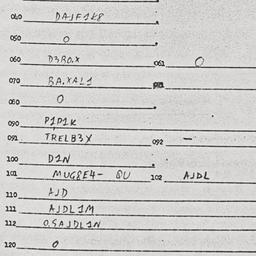 040 DAJF1K8
050 0
060 D3R0.X 061 0
070 BA.XAL1
080 0
090 P1P1K
091 TREL83X 092 —
100 D1N
101 MUG8E4- 8U 102 AJDL
110 AJD
111 AJDL1M
112 0.SAJD1N
120 0